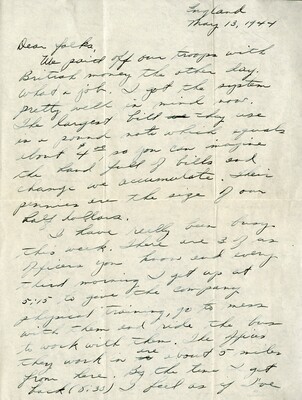 England
May 13, 1944
Dear folks,
We paid off our troops with
British money the other day.
What a job. I got the system
pretty well in mind now.
The largest bill they use
is a pound note which equals
about $4.00 so you can imagine
the hand full of bills and
change we accumulate. Their
pennies are the size of our
half dollars.
I have really been busy
this week. There are 3 of us
officers you know and every
third morning I get up at
5:15 to give the company
physical training, go to mess
with them and ride the bus
to work with them. The
they work in are about 5 miles
from here. By the time I get
back (5:30) I feel as if I've